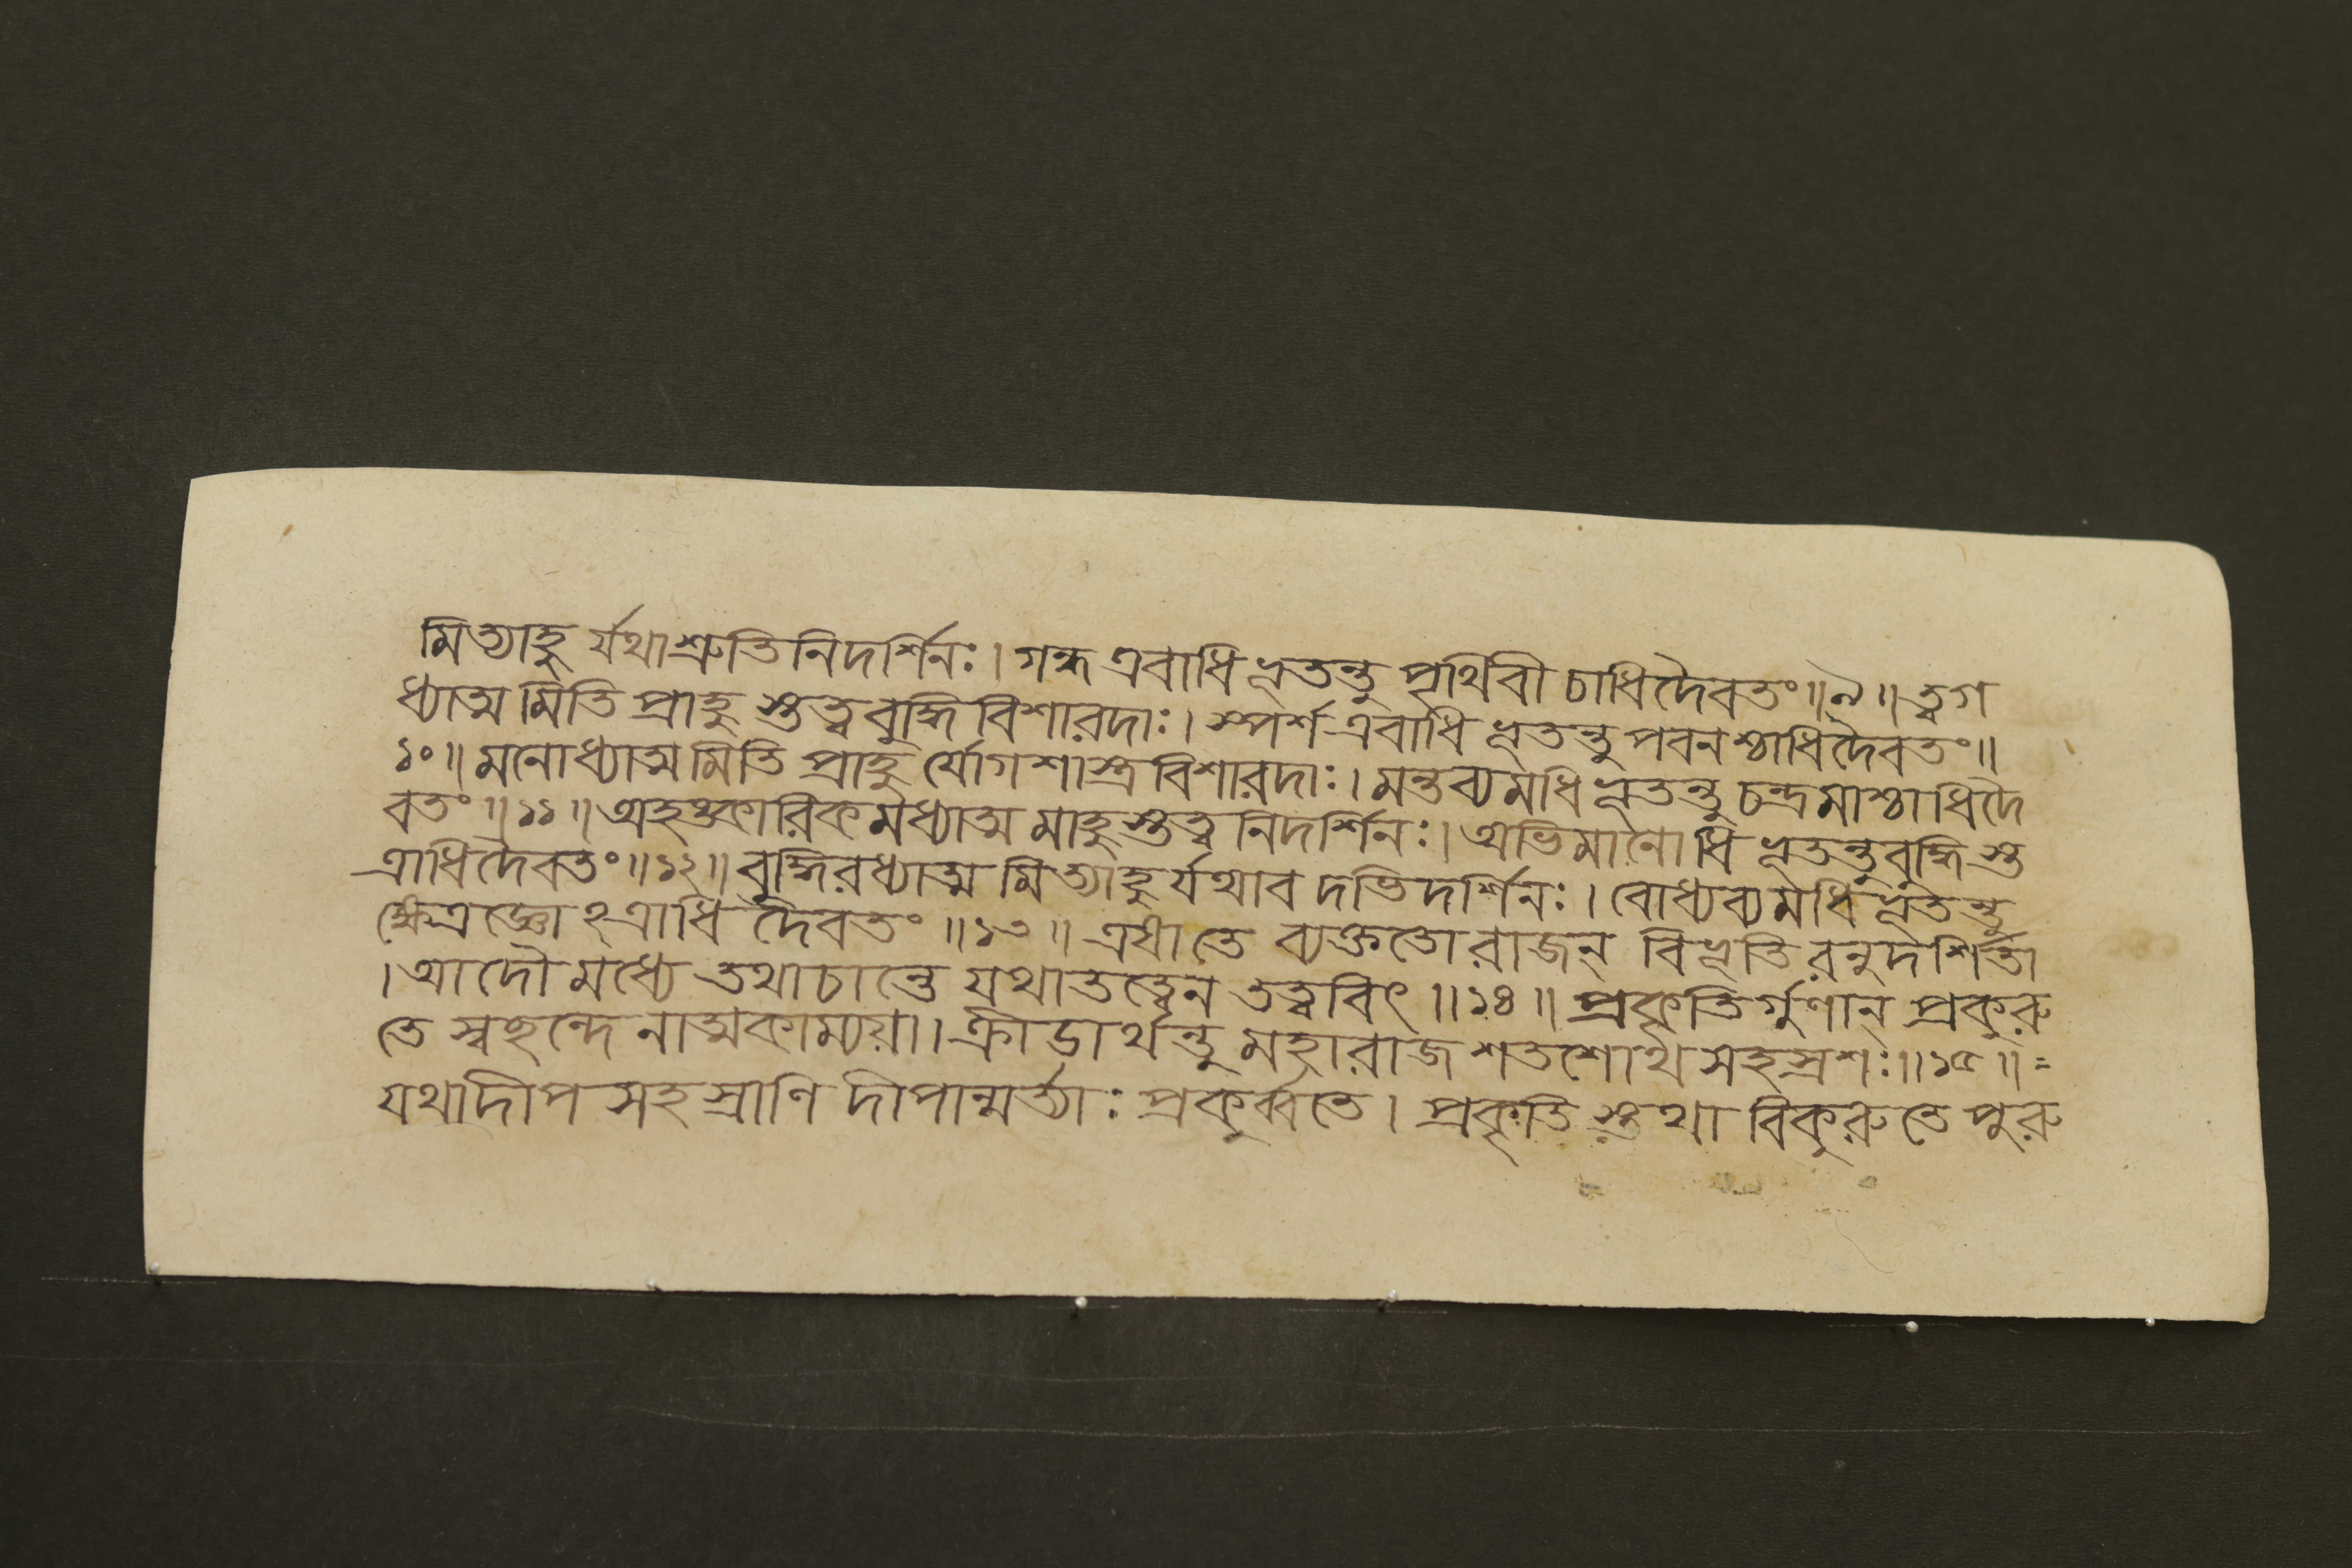 মিত্যাহু র্যথাশ্রুতিনিদর্শিনঃ। গন্ধ এবাধিভূতন্তু পৃথিবী চাধিদৈবতং॥৯॥ত্বগ
ধ্যাত্ম মিতি প্রাহু স্তত্ত্ববুদ্ধি বিশারদাঃ। স্পর্শ এবাধিভূতন্তু পবনশ্চাধিদৈবতং॥
১০॥মনোধ্যাত্ম মিতি প্রাহু র্যোগশাস্ত্র বিশারদাঃ। মন্তব্যমধিভূতন্তু চন্দ্রমাশ্চাধিদৈ
বতং॥১১॥অহঙ্কারিকমধ্যাত্ম মাহু স্তত্ত্ব নিদর্শিনঃ। অভিমানোধিভূতন্তুবুদ্ধি স্ত
ত্রাধিদৈবতং॥১২॥বুদ্ধিরধ্যাত্ম মিত্যাহু র্যথাব দভিদর্শিনঃ। বোধ্যব্যমধিভূতন্তু
ক্ষেত্রজ্ঞোঽত্রাধি দৈবতং॥১৩॥ এষাতে ব্যক্ততো রাজন্ বিভূতি রনুদর্শিতা
।আদৌ মধ্যে তথাচান্তে যথাতত্ত্বেন তত্ত্ববিৎ॥১৪॥ প্রকৃতি র্গুণান্ প্রকুরু
তে স্বছন্দে নাত্মকাম্যয়া।ক্রীডার্থন্তু মহারাজ শতশোথ সহস্রশঃ॥১৫॥=
যথাদীপ সহস্রাণি দীপান্মর্ত্যাঃ প্রকুর্ব্বতে। প্রকৃতি স্তথা বিকুরুতে পুরু